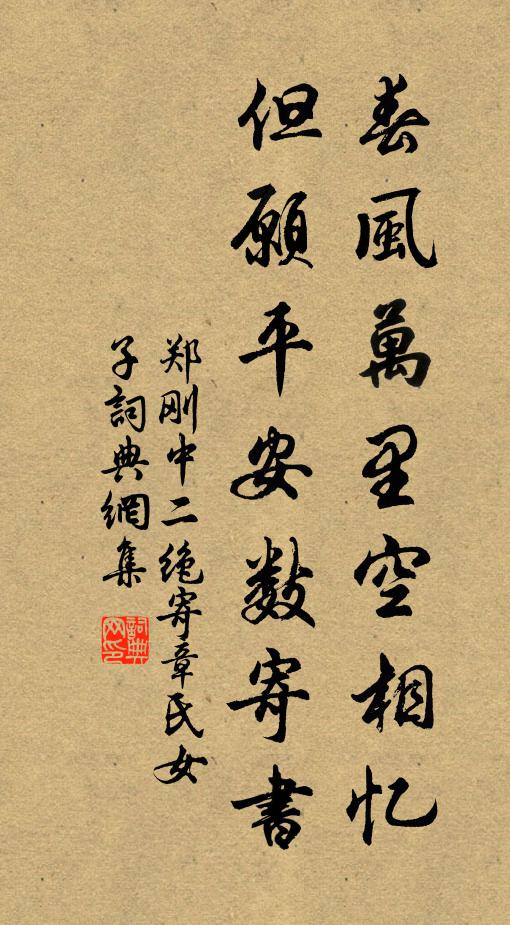 春風萬里空相忆
但願平安数寄書
郑刚中二绝寄章氏女
子詞典網集
詞典网印